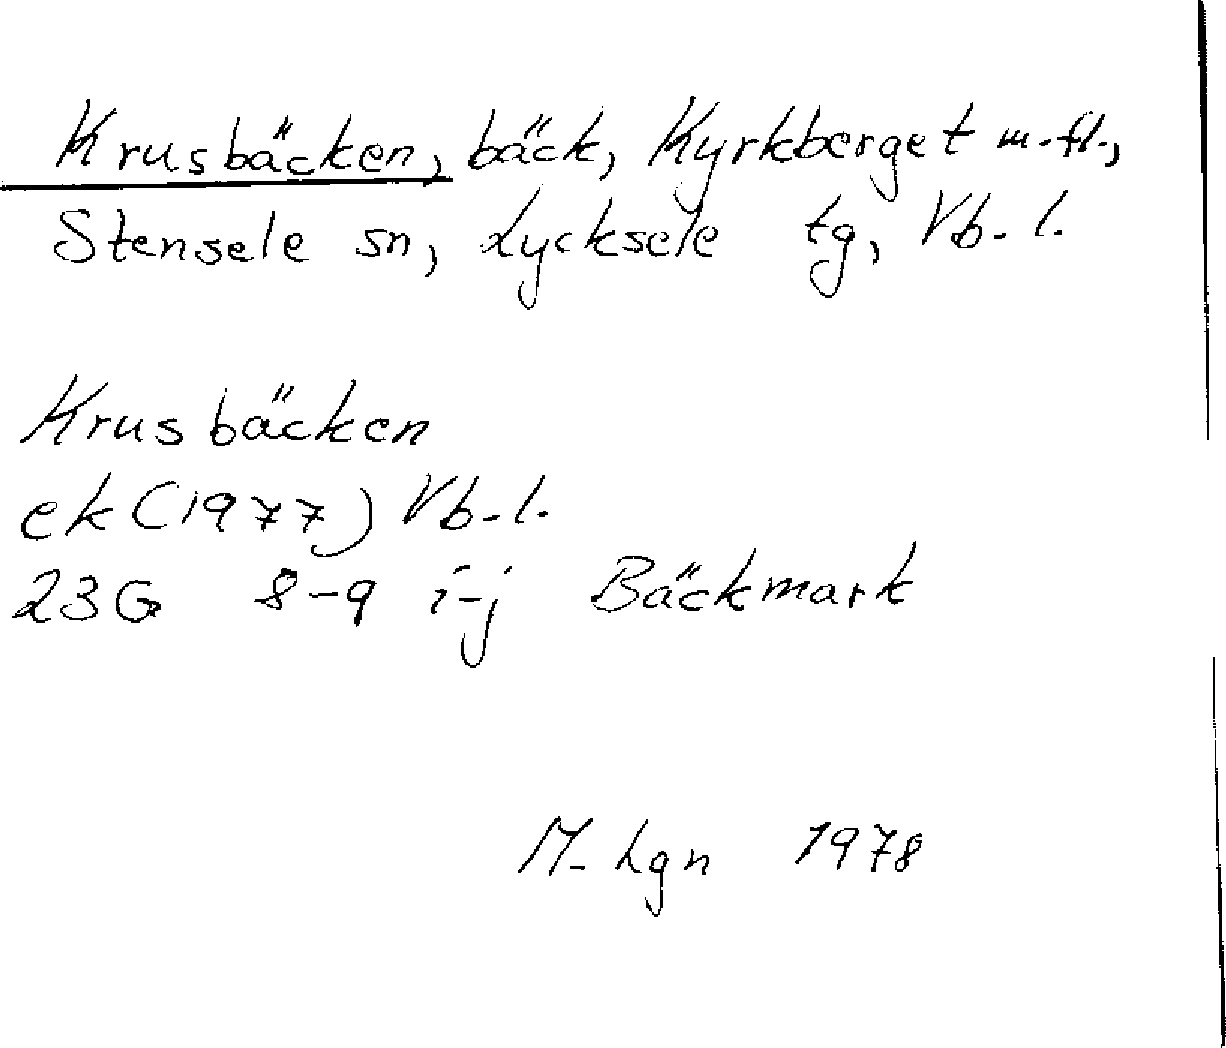 Krusbäcken, bäck, Kyrkberget m.fl.,
Stensele sn, Lycksele tg, Vb. l.
Krusbäcken
ek (1977) Vb. l.
23G 8-9 i-j Bäckmark
M. Lgn 1978